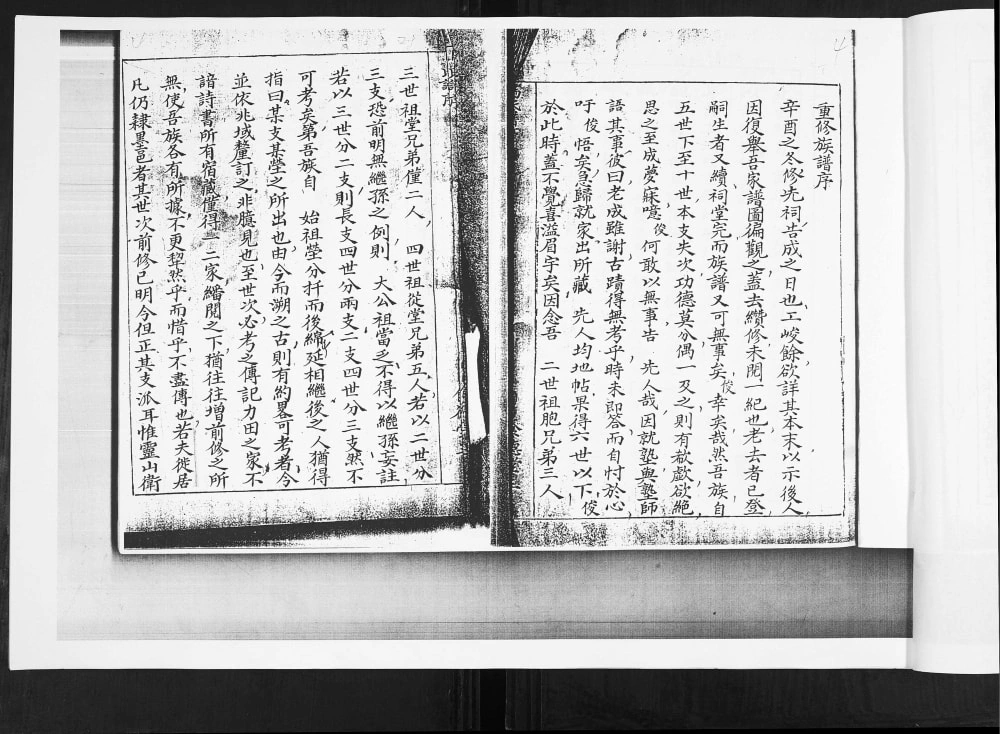 重修族譜序
辛酉之冬修先祠告成之日也工峻餘欲詳其本末以示後人
因復舉吾家譜圖徧觀之蓋去纘修未閱一紀也老去者已登
嗣生者又續祠堂完而族譜又可無事矣俊幸矣哉然吾族自
五世下至十世本支失次功德莫分偶一及之則有欷歔欲絕
思之至成夢寐噫俊何敢以無事告　先人哉因就塾與塾師
語其事彼曰老成雖謝古蹟得無考乎時未即答而自忖於心
吁俊悟矣急歸就家出所藏　先人均地帖果得六世以下俊
於此時蓋不覺喜溢眉宇矣因念吾　二世祖胞兄弟三人
三世祖堂兄弟僅二人　四世祖從堂兄弟五人若以二世分
三支恐前明無繼孫之例則　大公祖當乏不得以繼孫妄註
若以三世分二支則長支四世分兩支二支四世分三支然不
可考矣第吾族自　始祖塋分扦而後綿延相繼後之人猶得
指曰某支某塋之所出也由今而溯之古則有約畧可考者今
並依兆域釐訂之非臆見也至世次必考之傳記力田之家不
諳詩書所有宿藏僅得一二家繙閱之下猶往往增前修之所
無使吾族各有所據不更犂然乎而惜乎不盡傳也若夫徙居
凡仍隸墨邑者其世次前修已明今但正其支派耳惟靈山衛